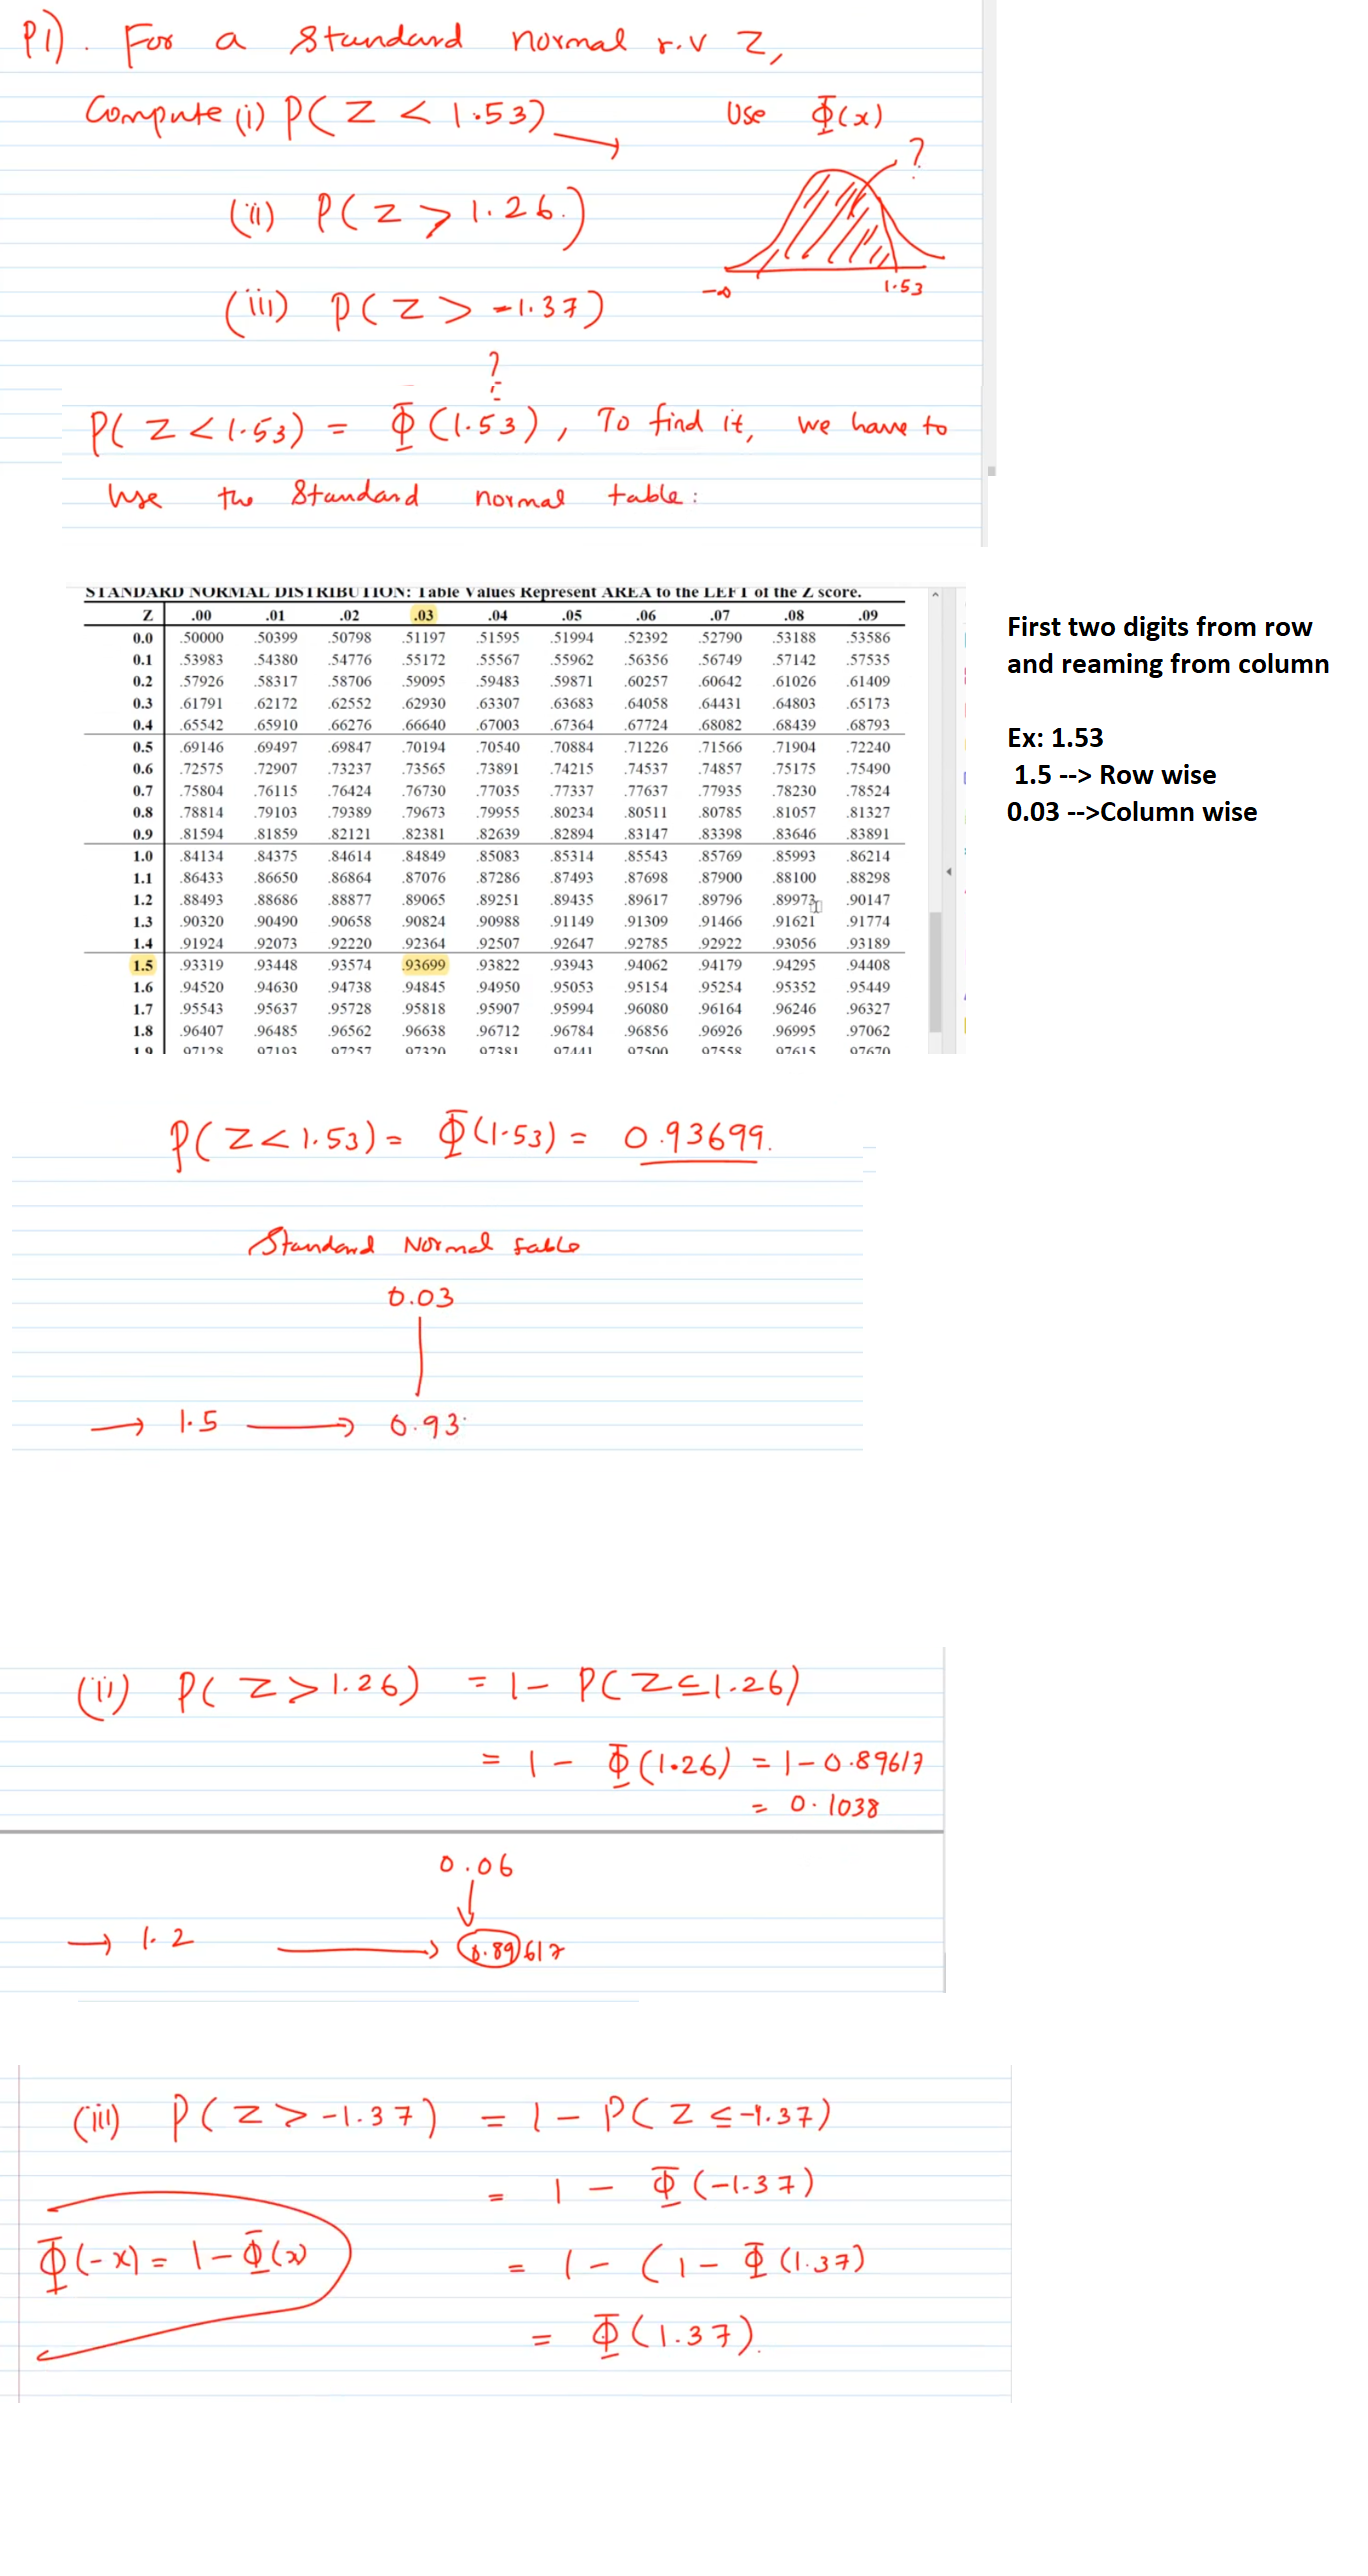 P1). For a standard normal r.v Z,
Compute (i) P( Z < 1.53) → Use Φ(x)
?
(ii) P( Z > 1.26.)
-∞ 1.53
(iii) P( Z > -1.37)
?
P( Z < 1.53) = Φ(1.53), To find it, we have to
use the Standard normal table:
STANDARD NORMAL DISTRIBUTION: Table Values Represent AREA to the LEFT of the Z score.
Z .00 .01 .02 .03 .04 .05 .06 .07 .08 .09
0.0 .50000 .50399 .50798 .51197 .51595 .51994 .52392 .52790 .53188 .53586
0.1 .53983 .54380 .54776 .55172 .55567 .55962 .56356 .56749 .57142 .57535
0.2 .57926 .58317 .58706 .59095 .59483 .59871 .60257 .60642 .61026 .61409
0.3 .61791 .62172 .62552 .62930 .63307 .63683 .64058 .64431 .64803 .65173
0.4 .65542 .65910 .66276 .66640 .67003 .67364 .67724 .68082 .68439 .68793
0.5 .69146 .69497 .69847 .70194 .70540 .70884 .71226 .71566 .71904 .72240
0.6 .72575 .72907 .73237 .73565 .73891 .74215 .74537 .74857 .75175 .75490
0.7 .75804 .76115 .76424 .76730 .77035 .77337 .77637 .77935 .78230 .78524
0.8 .78814 .79103 .79389 .79673 .79955 .80234 .80511 .80785 .81057 .81327
0.9 .81594 .81859 .82121 .82381 .82639 .82894 .83147 .83398 .83646 .83891
1.0 .84134 .84375 .84614 .84849 .85083 .85314 .85543 .85769 .85993 .86214
1.1 .86433 .86650 .86864 .87076 .87286 .87493 .87698 .87900 .88100 .88298
1.2 .88493 .88686 .88877 .89065 .89251 .89435 .89617 .89796 .89973 .90147
1.3 .90320 .90490 .90658 .90824 .90988 .91149 .91309 .91466 .91621 .91774
1.4 .91924 .92073 .92220 .92364 .92507 .92647 .92785 .92922 .93056 .93189
1.5 .93319 .93448 .93574 .93699 .93822 .93943 .94062 .94179 .94295 .94408
1.6 .94520 .94630 .94738 .94845 .94950 .95053 .95154 .95254 .95352 .95449
1.7 .95543 .95637 .95728 .95818 .95907 .95994 .96080 .96164 .96246 .96327
1.8 .96407 .96485 .96562 .96638 .96712 .96784 .96856 .96926 .96995 .97062
1.9 .97128 .97193 .97257 .97320 .97381 .97441 .97500 .97558 .97615 .97670
First two digits from row
and reaming from column
Ex: 1.53
1.5 --> Row wise
0.03 -->Column wise
P( Z < 1.53) = Φ(1.53) = 0.93699.
Standard Normal table
0.03
→ 1.5 → 0.93
(ii) P( Z > 1.26) = 1 - P( Z ≤ 1.26)
= 1 - Φ(1.26) = 1 - 0.89617
= 0.1038
0.06
→ 1.2 → 0.89617
(iii) P( Z > -1.37) = 1 - P( Z ≤ -1.37)
= 1 - Φ(-1.37)
Φ(-x) = 1 - Φ(x)
= 1 - (1 - Φ(1.37)
= Φ(1.37).